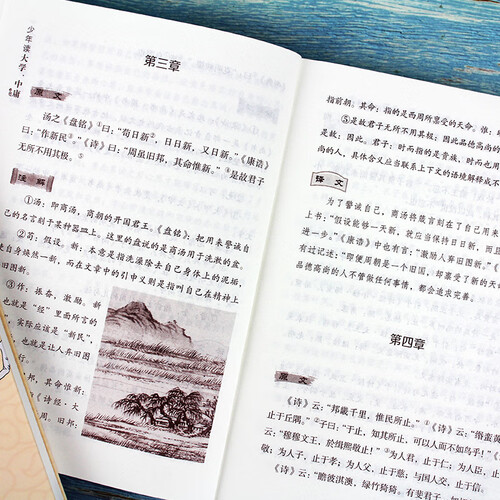 少年读大学·中庸
第三章
原文
汤之《盘铭》①曰：“苟日新②，日日新，又日新。”《康诰》
曰：“作新民③。”《诗》曰：“周虽旧邦，其命惟新。”④是故君子
无所不用其极。⑤
注解
①汤：即商汤，商朝的开国君王。《盘铭》：把用来警诫自
己的名言刻于某种器皿上。这里的盘说的是商汤用于洗漱的盆。
②苟：假设。新：本意是指洗澡除去自己身体上的泥垢，
使自身焕然一新，而在文章中的引申义则是指叫自己在精神上
弃旧图新。
③作：振奋，激励。新
也就是“经”里面所言的
，实际应该是“新民”，
，也就是让人弃旧图
行。
邦，其命惟新：
《诗经·大
周。旧邦：
指前朝。其命：指的是西周所禀受的天命。惟：
⑤是故君子无所不用其极：因此品德高尚的
是故：因此。君子：时而指的是贵族，时而也用
尚的人，具体含义应当联系上下文的语境解释成
译文
为了警诫自己，商汤将箴言刻在了自己用来
上书：“假设能够一天新，就应当保持日日新，而且
进一步。”《康诰》中也有言：“激励人弃旧图新。”《
有过记述：“即便周朝是一个旧国，却禀受了新的天
品德高尚的人不管做任何事情，都会追求完善。
第四章
原文
《诗》云：“邦畿千里，惟民所止。”①《诗》云：“缗蛮黄
止于丘隅。”②子曰：“于止，知其所止，可以人而不如鸟乎！”《诗》
云：“穆穆文王，於缉熙敬止！”③为人君，止于仁；为人臣，止于
敬；为人子，止于孝；为人父，止于慈；与国人交，止于信。
《诗》云：“瞻彼淇澳，绿竹猗猗，有斐君子，如